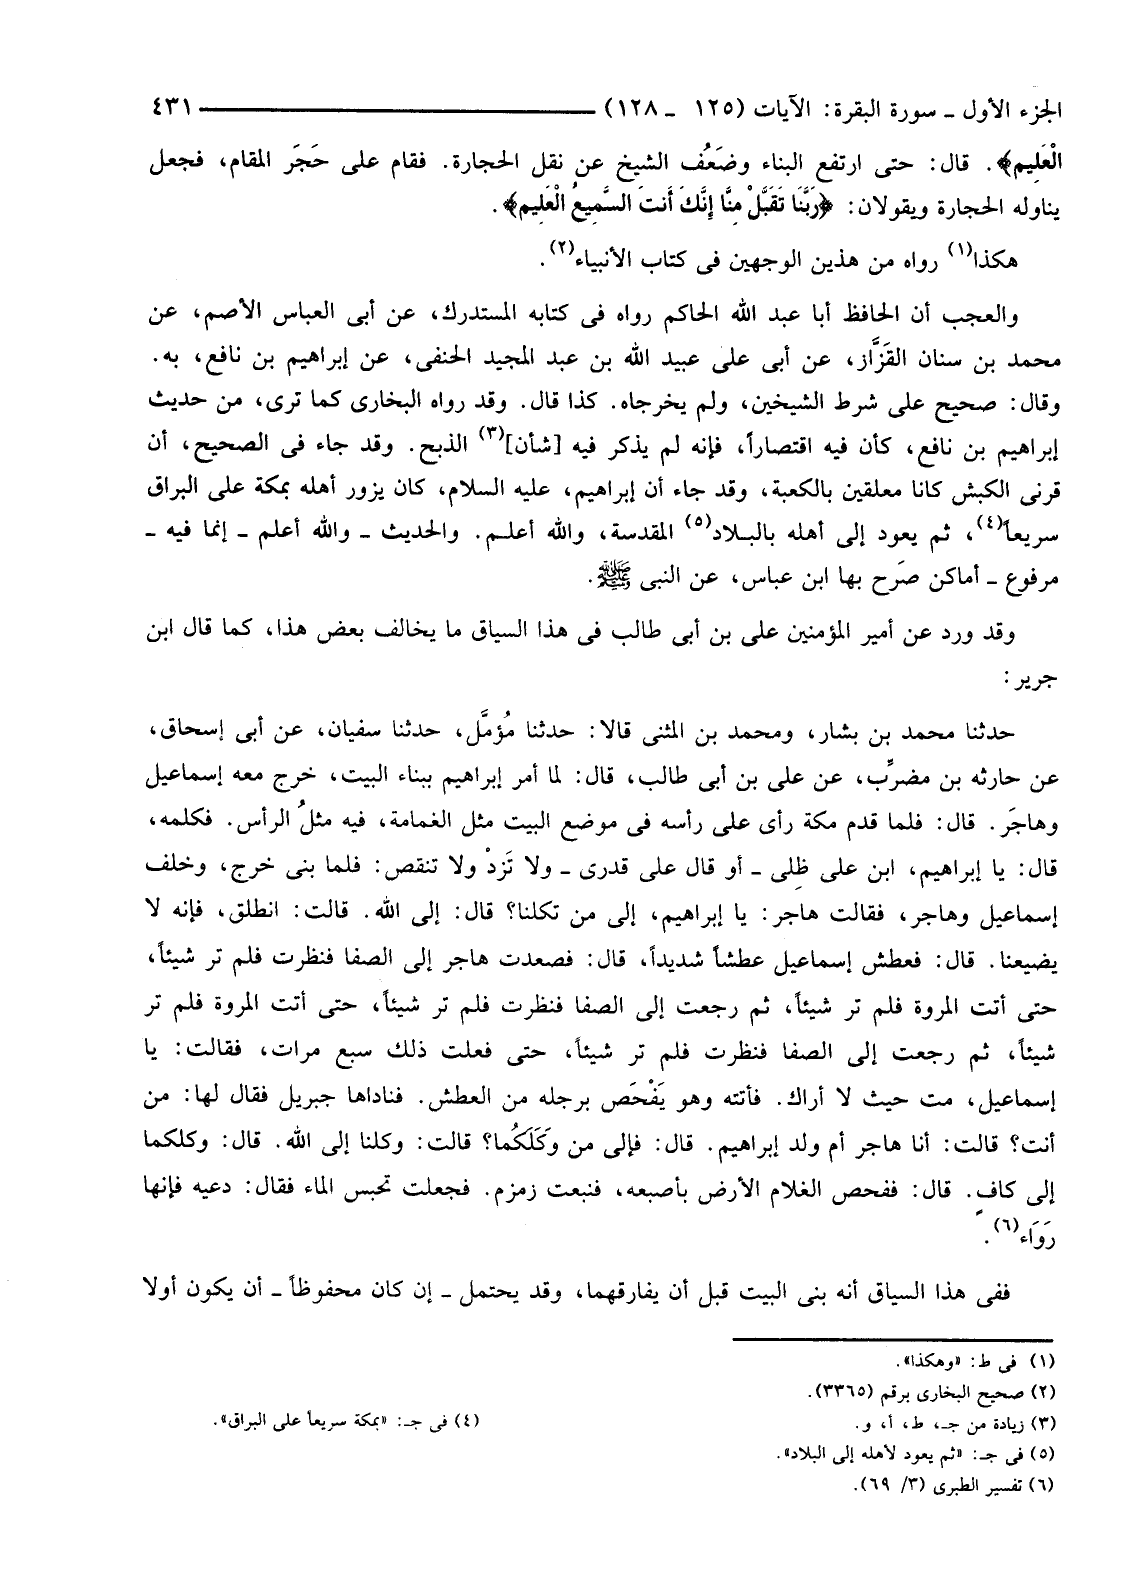 الجزء الأول ـ سورة البقرة: الآيات (١٢٥ ـ ١٢٨) ٤٣١
الْعَلِيم﴾. قال: حتى ارتفع البناء وضَعُف الشيخ عن نقل الحجارة. فقام على حَجَر المقام، فجعل
يناوله الحجارة ويقولان: ﴿رَبَّنَا تَقَبَّلْ مِنَّا إِنَّكَ أَنتَ السَّمِيعُ الْعَلِيم﴾.
هكذا(١) رواه من هذين الوجهين فى كتاب الأنبياء(٢).
والعجب أن الحافظ أبا عبد الله الحاكم رواه فى كتابه المستدرك، عن أبى العباس الأصم، عن
محمد بن سنان القَزَّاز، عن أبى على عبيد الله بن عبد المجيد الحنفى، عن إبراهيم بن نافع، به.
وقال: صحيح على شرط الشيخين، ولم يخرجاه. كذا قال. وقد رواه البخارى كما ترى، من حديث
إبراهيم بن نافع، كأن فيه اقتصاراً، فإنه لم يذكر فيه [شأن](٣) الذبح. وقد جاء فى الصحيح، أن
قرنى الكبش كانا معلقين بالكعبة، وقد جاء أن إبراهيم، عليه السلام، كان يزور أهله بمكة على البراق
سريعاً(٤)، ثم يعود إلى أهله بالبلاد(٥) المقدسة، والله أعلم. والحديث ـ والله أعلم ـ إنما فيه ـ
مرفوع ـ أماكن صَرح بها ابن عباس، عن النبى ﷺ.
وقد ورد عن أمير المؤمنين على بن أبى طالب فى هذا السياق ما يخالف بعض هذا، كما قال ابن
جرير:
حدثنا محمد بن بشار، ومحمد بن المثنى قالا: حدثنا مُؤمَّل، حدثنا سفيان، عن أبى إسحاق،
عن حارثه بن مضرِّب، عن على بن أبى طالب، قال: لما أمر إبراهيم ببناء البيت، خرج معه إسماعيل
وهاجَر. قال: فلما قدم مكة رأى على رأسه فى موضع البيت مثل الغمامة، فيه مثلُ الرأس. فكلمه،
قال: يا إبراهيم، ابن على ظِلى ـ أو قال على قدرى ـ ولا تَزدْ ولا تنقص: فلما بنى خرج، وخلف
إسماعيل وهاجر، فقالت هاجر: يا إبراهيم، إلى من تكلنا؟ قال: إلى الله. قالت: انطلق، فإنه لا
يضيعنا. قال: فعطش إسماعيل عطشاً شديداً، قال: فصعدت هاجر إلى الصفا فنظرت فلم تر شيئاً،
حتى أتت المروة فلم تر شيئاً، ثم رجعت إلى الصفا فنظرت فلم تر شيئاً، حتى أتت المروة فلم تر
شيئاً، ثم رجعت إلى الصفا فنظرت فلم تر شيئاً، حتى فعلت ذلك سبع مرات، فقالت: يا
إسماعيل، مت حيث لا أراك. فأتته وهو يَفْحَص برجله من العطش. فناداها جبريل فقال لها: من
أنت؟ قالت: أنا هاجر أم ولد إبراهيم. قال: فإلى من وَكَلَكُما؟ قالت: وكلنا إلى الله. قال: وكلكما
إلى كافٍ. قال: ففحص الغلام الأرض بأصبعه، فنبعت زمزم. فجعلت تحبس الماء فقال: دعيه فإنها
رَوَاء(٦).
ففى هذا السياق أنه بنى البيت قبل أن يفارقهما، وقد يحتمل ـ إن كان محفوظاً ـ أن يكون أولا
(١) فى ط: «وهكذا».
(٢) صحيح البخارى برقم (٣٣٦٥).
(٣) زيادة من جـ، ط، أ، و.
(٤) فى جـ: «بمكة سريعاً على البراق».
(٥) فى جـ: «ثم يعود لأهله إلى البلاد».
(٦) تفسير الطبرى (٣/ ٦٩).